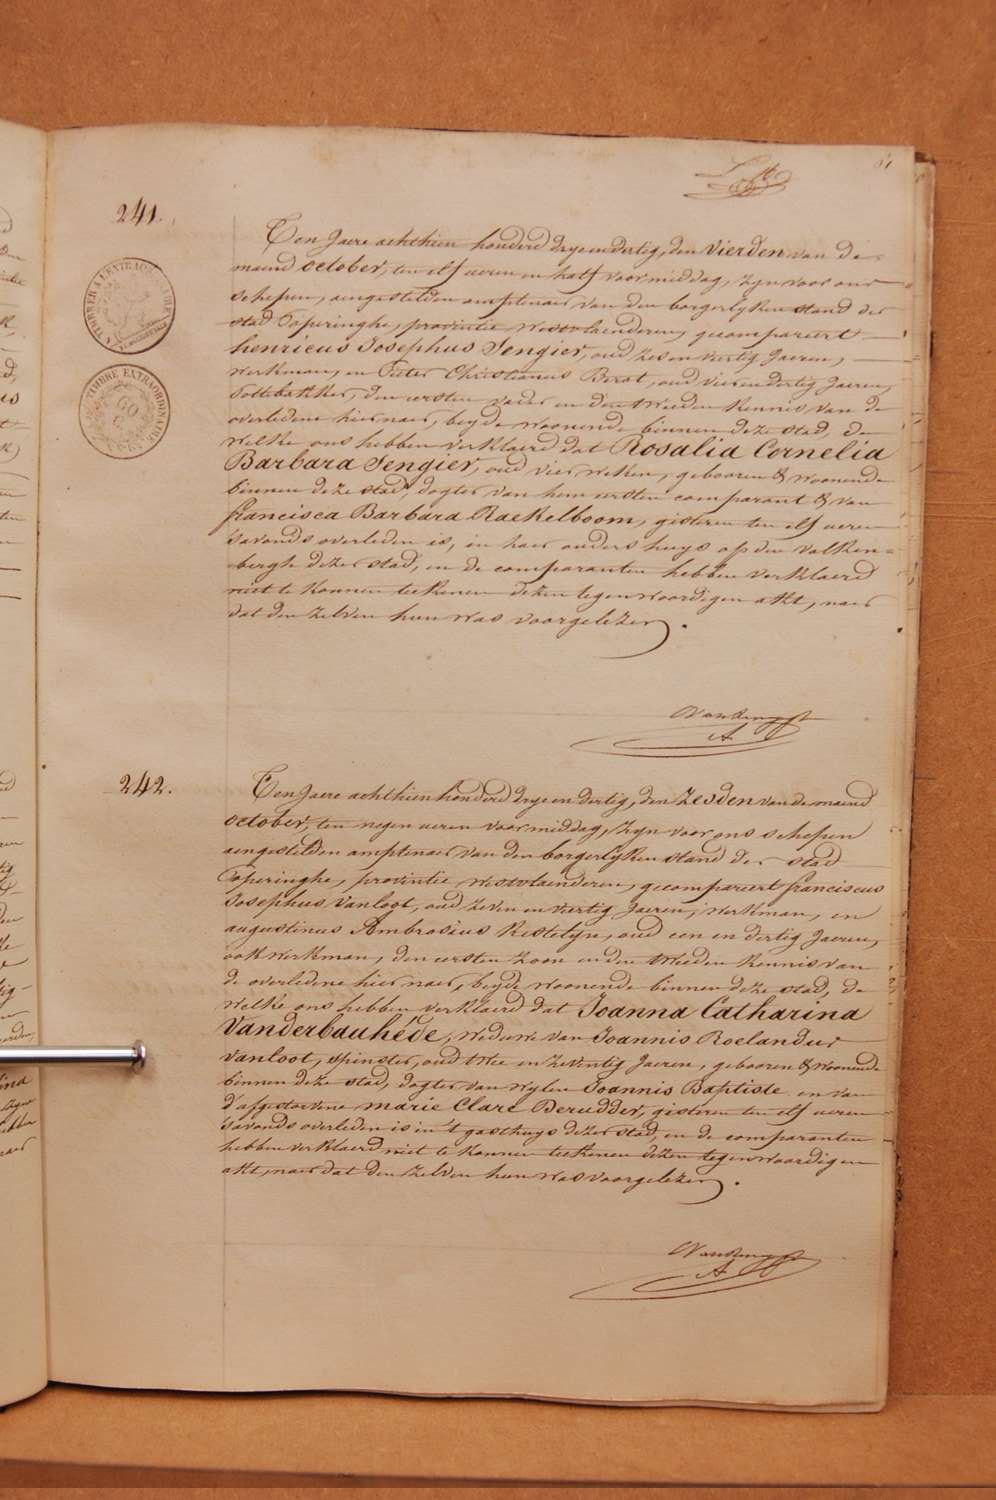 81
241.
Ten Jaere achthien honderd drye en dertig, den vierden van de
maend october, ten elf ueren en half voormiddag, zyn voor ons
schepen, aengestelden amptenaer van den borgerlyken stand der
stad Poperinghe, provintie westvlaenderen, gecompareert
henricus Josephus Sengier, oud zes en viertig Jaeren,
werkman, en Pieter Christianus Berat, oud vier en dertig Jaeren,
Pottebakker, den eersten vader en den tweeden kennis van de
overledene hier naer, beyde woonende binnen deze stad, de
welke ons hebben verklaerd dat Rosalia Cornelia
Barbara Sengier, oud vier weken, gebooren & woonende
binnen deze stad, dogter van hem eersten comparant & van
francisca Barbara Raekelboom, gisteren ten elf ueren
s'avonds overleden is, in haer ouders huys op den valken=
bergh dezer stad, en de comparanten hebben verklaerd
niet te konnen teekenen dezen tegenwoordigen akt, naer
dat den zelven hun was voorgelezen.
TIMBRE EXTRAORDINAIRE
242.
Ten Jaere achthien honderd drye en dertig, den zesden van de maend
october, ten negen ueren voormiddag, zyn voor ons schepen
aengestelden amptenaer van den borgerlyken stand der stad
Poperinghe, provintie westvlaenderen, gecompareert franciscus
Josephus Vanloot, oud zeven en viertig Jaeren, werkman, en
augustinus Ambrosius Kestelyn, oud een en dertig Jaeren,
ook werkman, den eersten zoon en den tweeden kennis van
de overledene hier naer, beyde woonende binnen deze stad, de
welke ons hebben verklaerd dat Joanna Catharina
Vanderbauhède, weduwe van Joannis Roelandus
vanloot, spinster, oud twee en zeventig Jaeren, gebooren & woonende
binnen deze stad, dogter van wylen Joannis Baptiste en van
d'afgestorvene marie Clare Derudder, gisteren ten elf ueren
s'avonds overleden is in 't gasthuys dezer stad, en de comparanten
hebben verklaerd niet te konnen teekenen dezen tegenwoordigen
akt, naer dat den zelven hun was voorgelezen.